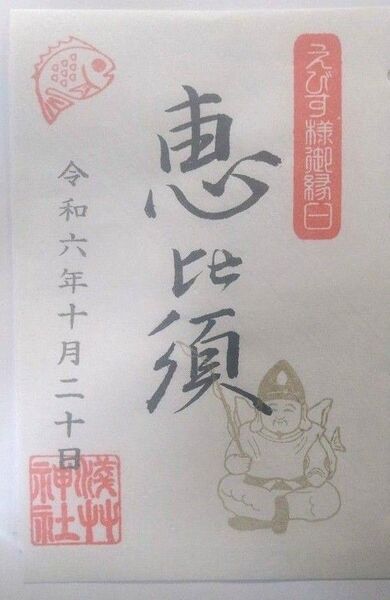 えびす様御縁日
恵比須
令和六年十月二十日
浅草
神社